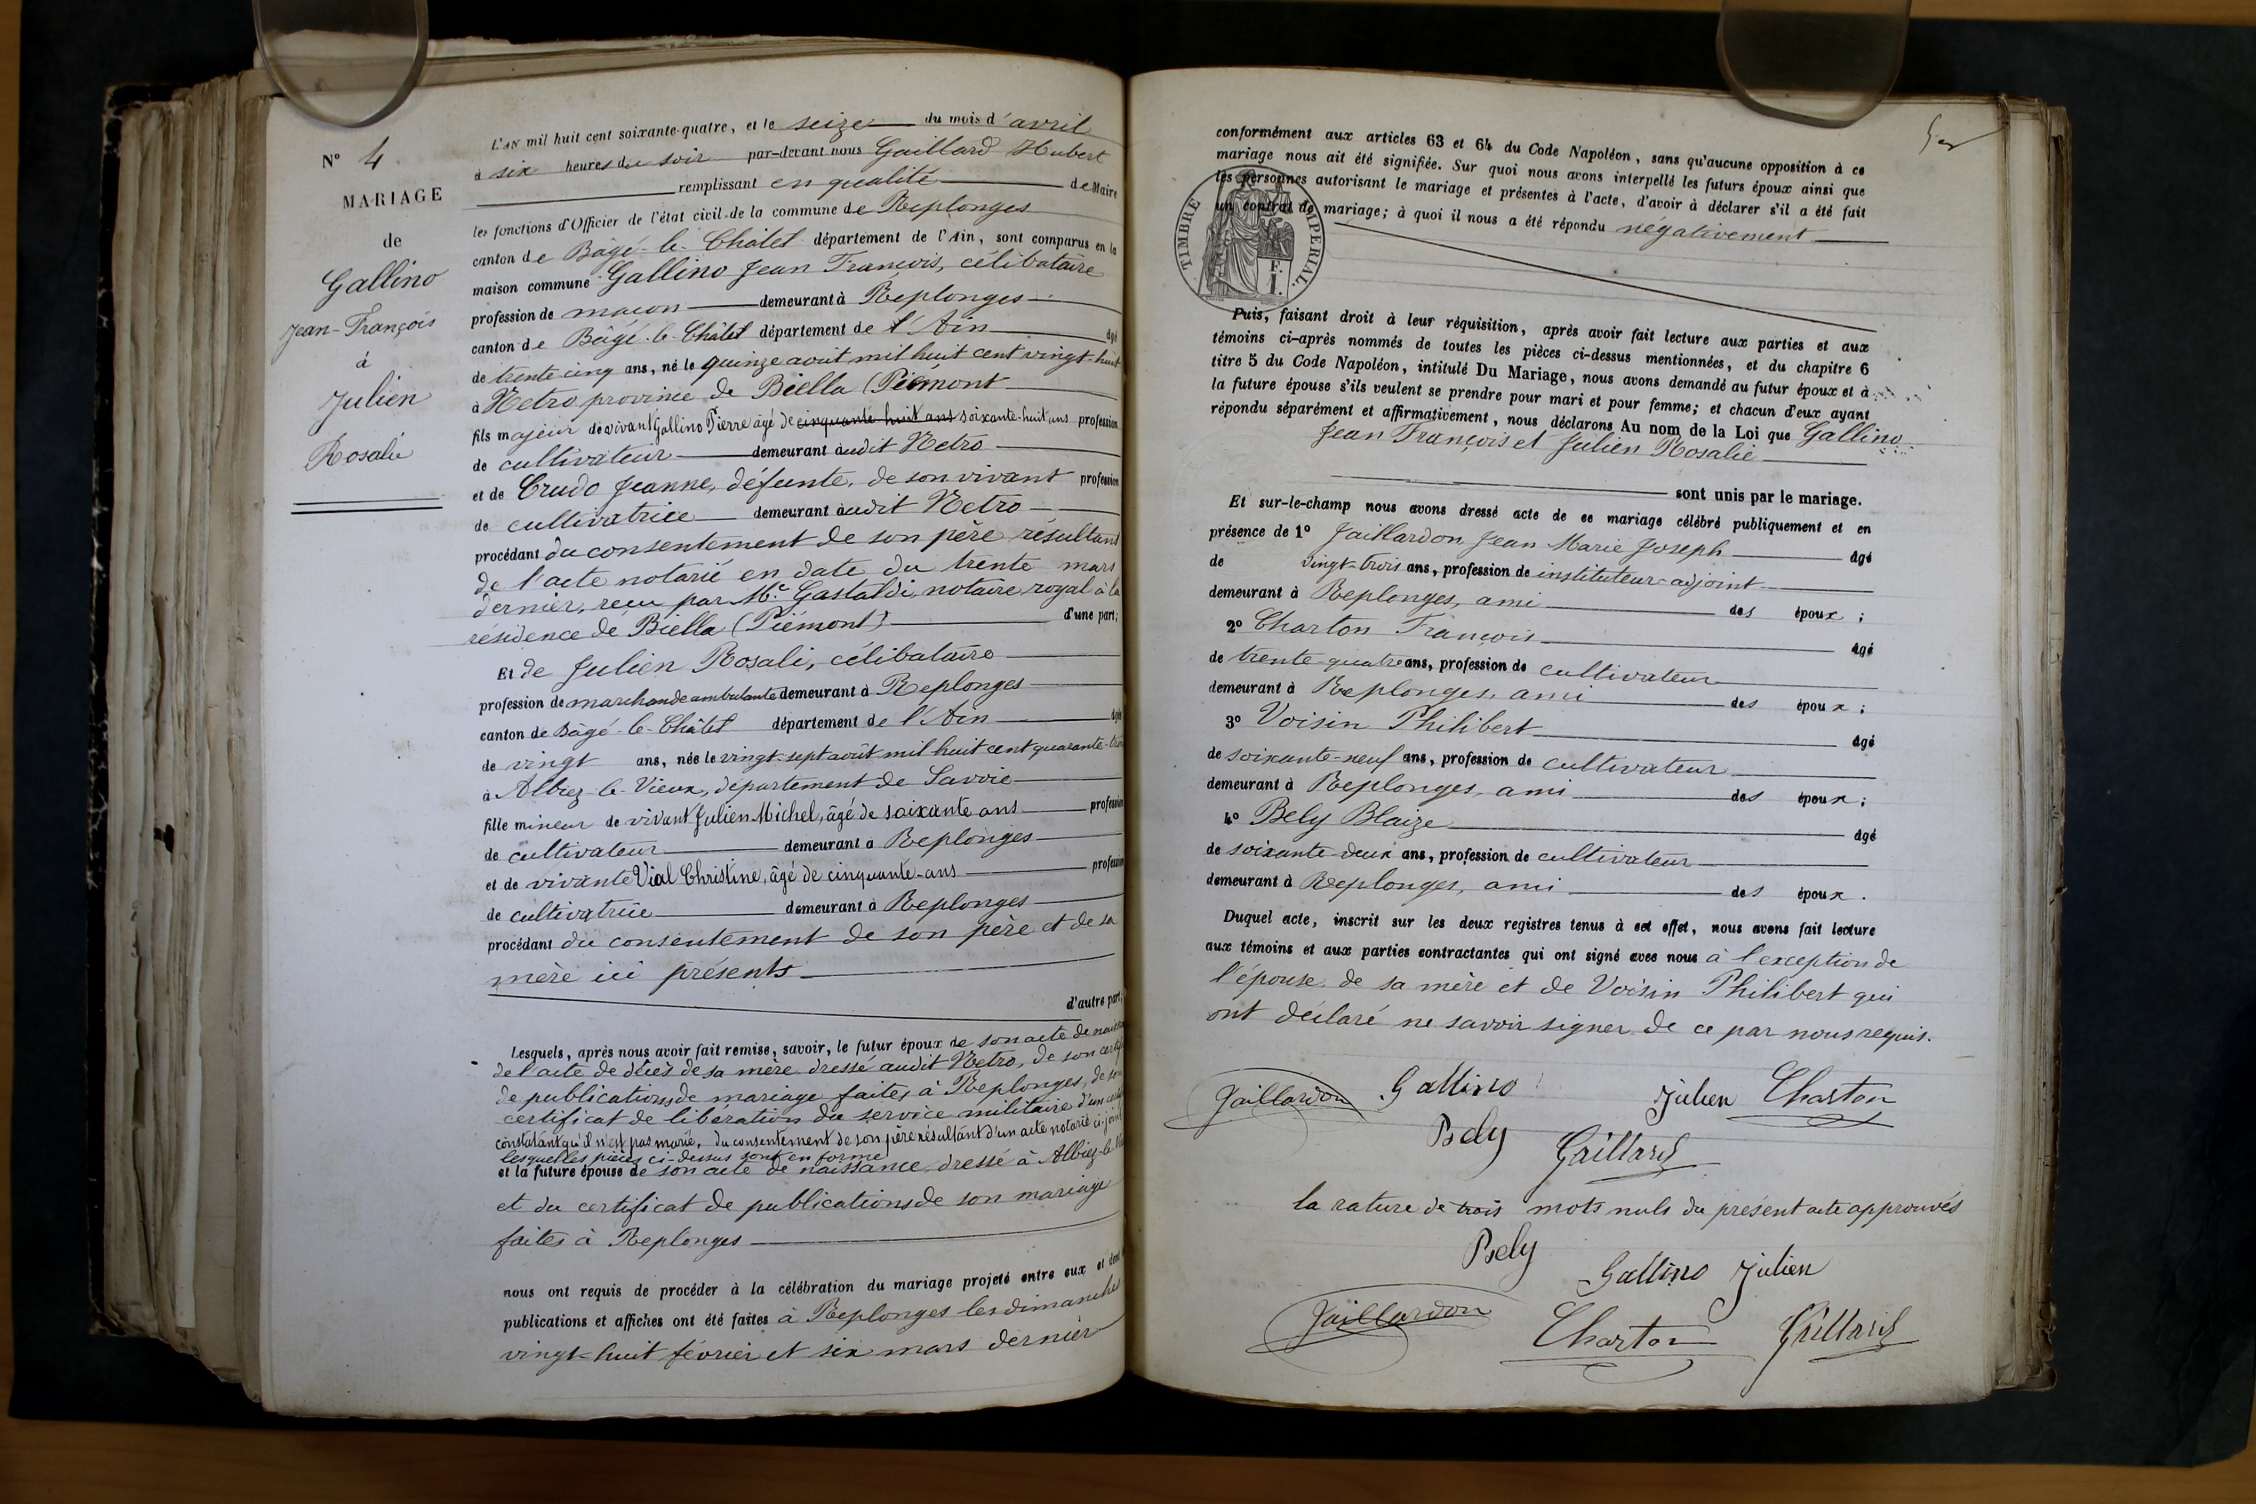 N° 4
MARIAGE
de
Gallino
Jean-François
à
Julien
Rosalie
L'AN mil huit cent soixante-quatre, et le seize du mois d'avril
à six heures du soir par-devant nous Gaillard Hubert
remplissant en qualité de Maire
les fonctions d'Officier de l'état civil de la commune de Replonges
canton de Bâgé-le-Châtel département de l'Ain, sont comparus en la
maison commune Gallino Jean François, célibataire
profession de maçon demeurant à Replonges
canton de Bâgé-le-Châtel département de l'Ain âgé
de trente cinq ans, né le quinze août mil huit cent vingt-huit
à Netro province de Biella (Piémont
fils majeur de vivant Gallino Pierre âgé de cinquante huit ans soixante-huit ans profession
de cultivateur demeurant audit Netro
et de Crudo Jeanne, défunte, de son vivant profession
de cultivatrice demeurant audit Netro
procédant du consentement de son père résultant
de l'acte notarié en date du trente mars
dernier, reçu par Me Gastaldi, notaire royal à la
résidence de Biella (Piémont) d'une part;
Et de Julien Rosali, célibataire
profession de marchande ambulante demeurant à Replonges
canton de Bâgé-le-Châtel département de l'Ain âgée
de vingt ans, née le vingt-sept août mil huit cent quarante-trois
à Albiez-le-Vieux, département de Savoie
fille mineur de vivant Julien Michel, âgé de soixante ans profession
de cultivateur demeurant à Replonges
et de vivante Vial Christine, âgé de cinquante-ans profession
de cultivatrice demeurant à Replonges
procédant du consentement de son père et de sa
mère ici présents
d'autre part;
Lesquels, après nous avoir fait remise, savoir, le futur époux de son acte de
de l'acte de décès de sa mère dressé audit Netro, de son
de publications de mariage faites à Replonges, de son
certificat de libération du service militaire d'un
constatant qu'il n'est pas marié, du consentement de son père résultant d'un acte notarié ci-joint
lesquelles pièces ci-dessus sont en forme
et la future épouse de son acte de naissance dressé à Albiez-le-
et du certificat de publications de son mariage
faites à Replonges
nous ont requis de procéder à la célébration du mariage projeté entre eux et dont
publications et affiches ont été faites à Replonges les dimanches
vingt-huit février et six mars dernier
conformément aux articles 63 et 64 du Code Napoléon, sans qu'aucune opposition à ce
mariage nous ait été signifiée. Sur quoi nous avons interpellé les futurs époux ainsi que
les personnes autorisant le mariage et présentes à l'acte, d'avoir à déclarer s'il a été fait
un contrat de mariage; à quoi il nous a été répondu négativement
TIMBRE IMPERIAL.
F.
I.
Puis, faisant droit à leur réquisition, après avoir fait lecture aux parties et aux
témoins ci-après nommés de toutes les pièces ci-dessus mentionnées, et du chapitre 6
titre 5 du Code Napoléon, intitulé Du Mariage, nous avons demandé au futur époux et à
la future épouse s'ils veulent se prendre pour mari et pour femme; et chacun d'eux ayant
répondu séparément et affirmativement, nous déclarons Au nom de la Loi que Gallino
Jean François et Julien Rosalie
sont unis par le mariage.
Et sur-le-champ nous avons dressé acte de ce mariage célébré publiquement et en
présence de 1° Jaillardon Jean Marie Joseph âgé
de vingt-trois ans, profession de instituteur-adjoint
demeurant à Replonges, ami des époux;
2° Charton François âgé
de trente quatre ans, profession de cultivateur
demeurant à Replonges, ami des époux;
3° Voisin Philibert âgé
de soixante-neuf ans, profession de cultivateur
demeurant à Replonges, ami des époux;
4° Bely Blaize âgé
de soixante-deux ans, profession de cultivateur
demeurant à Replonges, ami des époux.
Duquel acte, inscrit sur les deux registres tenus à cet effet, nous avons fait lecture
aux témoins et aux parties contractantes qui ont signé avec nous à l'exception de
l'épouse, de sa mère et de Voisin Philibert qui
ont déclaré ne savoir signer de ce par nous requis.
Jaillardon Gallino Julien Charton
Bely Gaillard
la rature de trois mots nuls du présent acte approuvés
Bely
Gallino Julien
Jaillardon Charton Gaillard